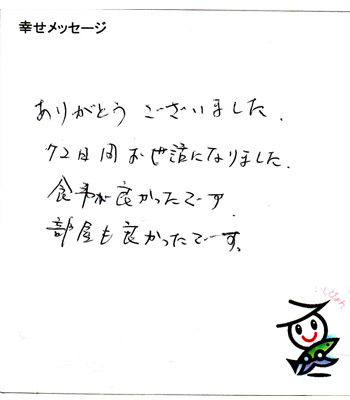 幸せメッセージ
ありがとう ございました.
72日間お世話になりました.
食事が良かったです
部屋も良かったです。